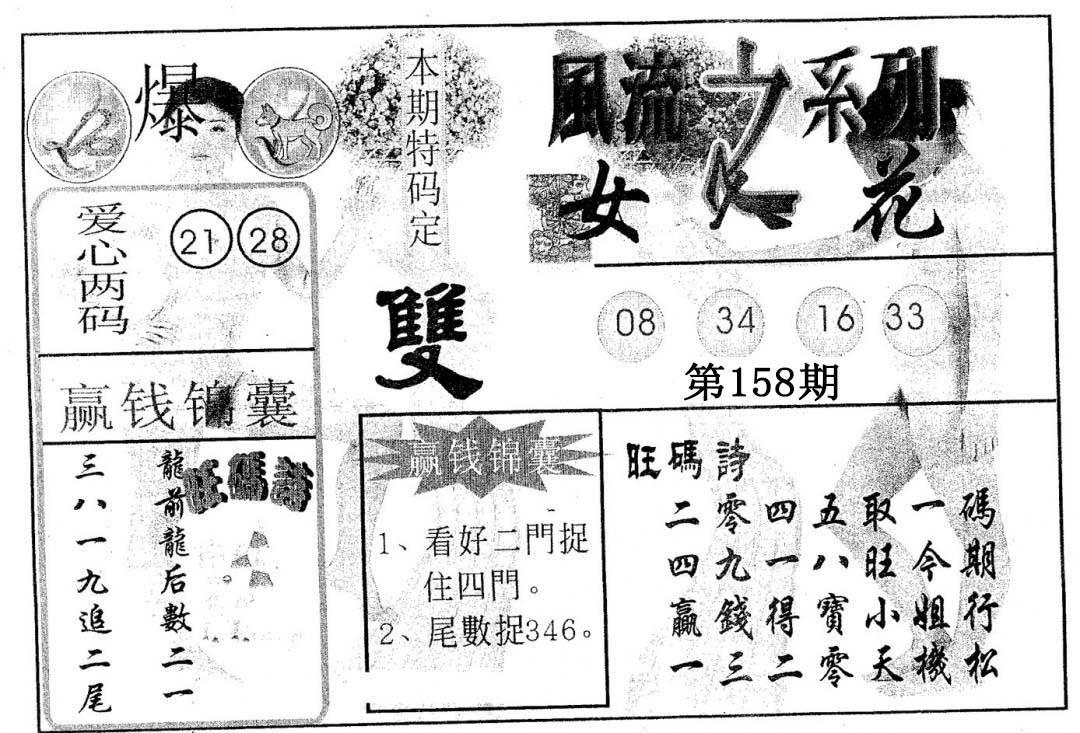 爆
本期特码定
雙
風流之系列
女人花
爱心两码
21 28
08 34 16 33
第158期
赢钱锦囊
旺碼詩
龍前龍后數二一
三八一九追二尾
赢钱锦囊
1、看好二門捉
住四門。
2、尾數捉346。
旺碼詩
二零四五取一碼
四九一八旺今期
贏錢得寶小姐行
一三二零天機松